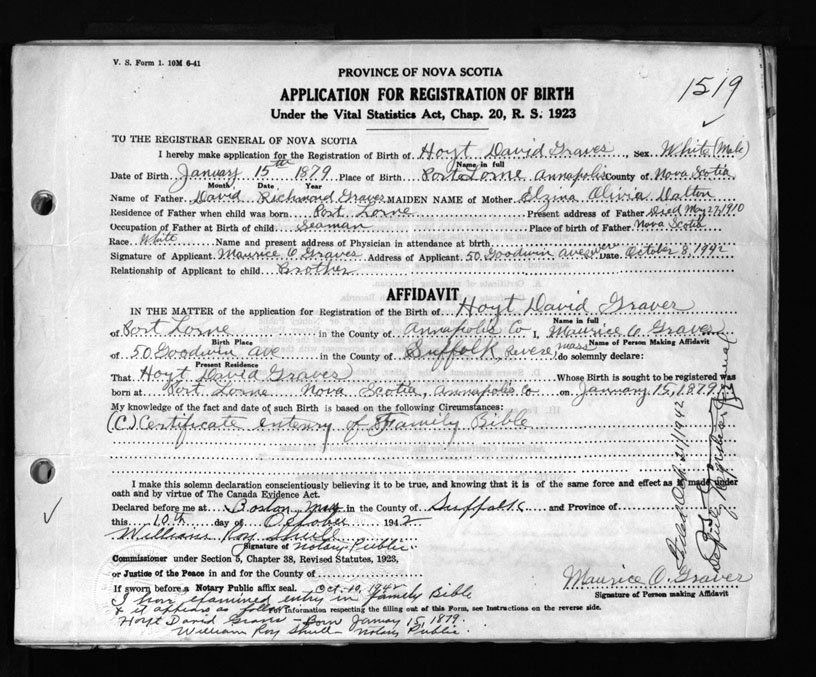 V. S. Form 1. 10M 6-41
1519
PROVINCE OF NOVA SCOTIA
APPLICATION FOR REGISTRATION OF BIRTH
Under the Vital Statistics Act, Chap. 20, R. S. 1923
TO THE REGISTRAR GENERAL OF NOVA SCOTIA
I hereby make application for the Registration of Birth of Hoyt David Graves, Sex White (Male)
Name in full
Date of Birth January 15th 1879 Place of Birth Port Lorne Annapolis County of Nova Scotia
Month, Date, Year
Name of Father David Richmond Graves MAIDEN NAME of Mother Elzina Olivia Dalton
Residence of Father when child was born Port Lorne Present address of Father Died May 27, 1910
Occupation of Father at Birth of child Seaman Place of birth of Father Nova Scotia
Race White Name and present address of Physician in attendance at birth
Signature of Applicant Maurice O Graves Address of Applicant 50 Goodwin ave Revere Date October 8, 1942
Relationship of Applicant to child Brother
AFFIDAVIT
IN THE MATTER of the application for Registration of the Birth of Hoyt David Graves
Name in full
of Port Lorne in the County of Annapolis Co I, Maurice O. Graves
Birth Place Name of Person Making Affidavit
of 50 Goodwin Ave in the County of Suffolk Revere Mass do solemnly declare:
Present Residence
That Hoyt David Graves Whose Birth is sought to be registered was
born at Port Lorne Nova Scotia, Annapolis Co on January 15, 1879
My knowledge of the fact and date of such Birth is based on the following Circumstances:
(C) Certificate entenry of Family Bible
I make this solemn declaration conscientiously believing it to be true, and knowing that it is of the same force and effect as if made under
oath and by virtue of The Canada Evidence Act.
Declared before me at Boston, Mass in the County of Suffolk and Province of
this 10th day of October 1942
William Roy Shull
Signature of Notary Public.
Commissioner under Section 5, Chapter 38, Revised Statutes, 1923,
or Justice of the Peace in and for the County of
If sworn before a Notary Public affix seal. Oct. 10, 1942
Maurice O. Graves
Signature of Person making Affidavit
I have examined entry in Family Bible
& it appears as follows
information respecting the filling out of this Form, see Instructions on the reverse side.
Hoyt David Graves - Born January 15, 1879.
William Roy Shull - Notary Public.
Oct. 21/1942
Deputy Registrar General